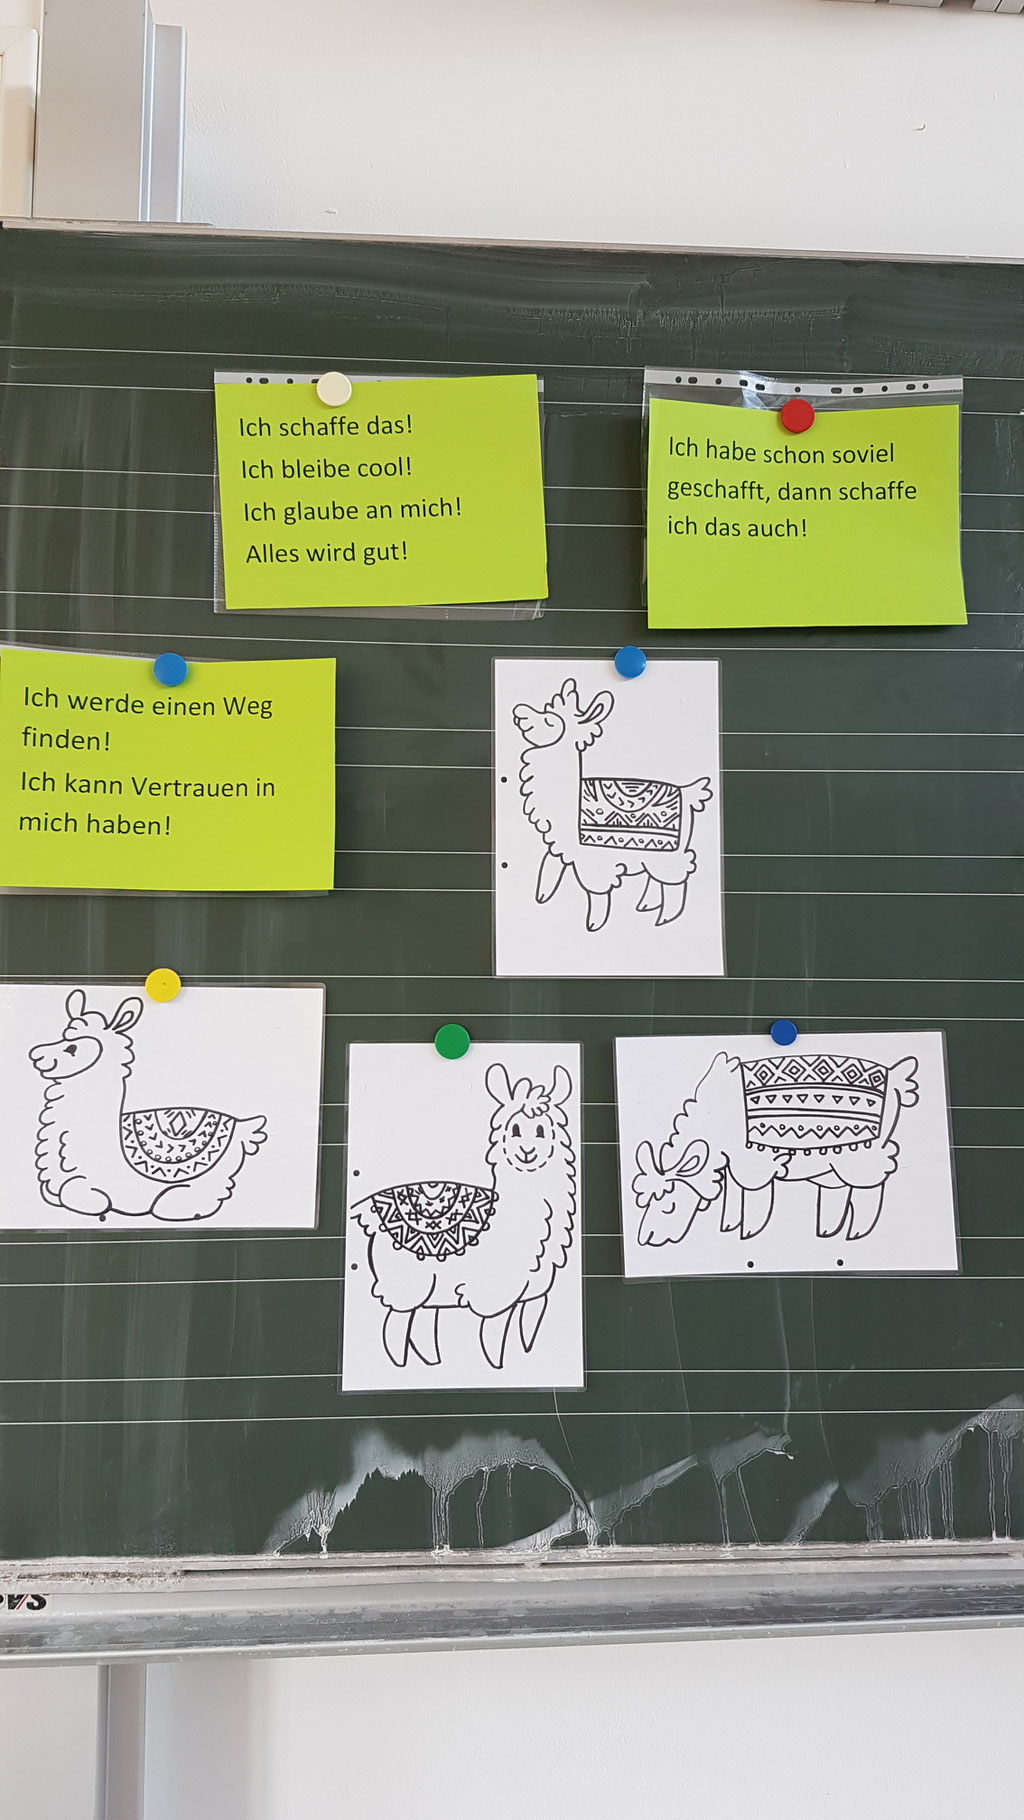 Ich schaffe das!
Ich bleibe cool!
Ich glaube an mich!
Alles wird gut!
Ich habe schon soviel
geschafft, dann schaffe
ich das auch!
Ich werde einen Weg
finden!
Ich kann Vertrauen in
mich haben!